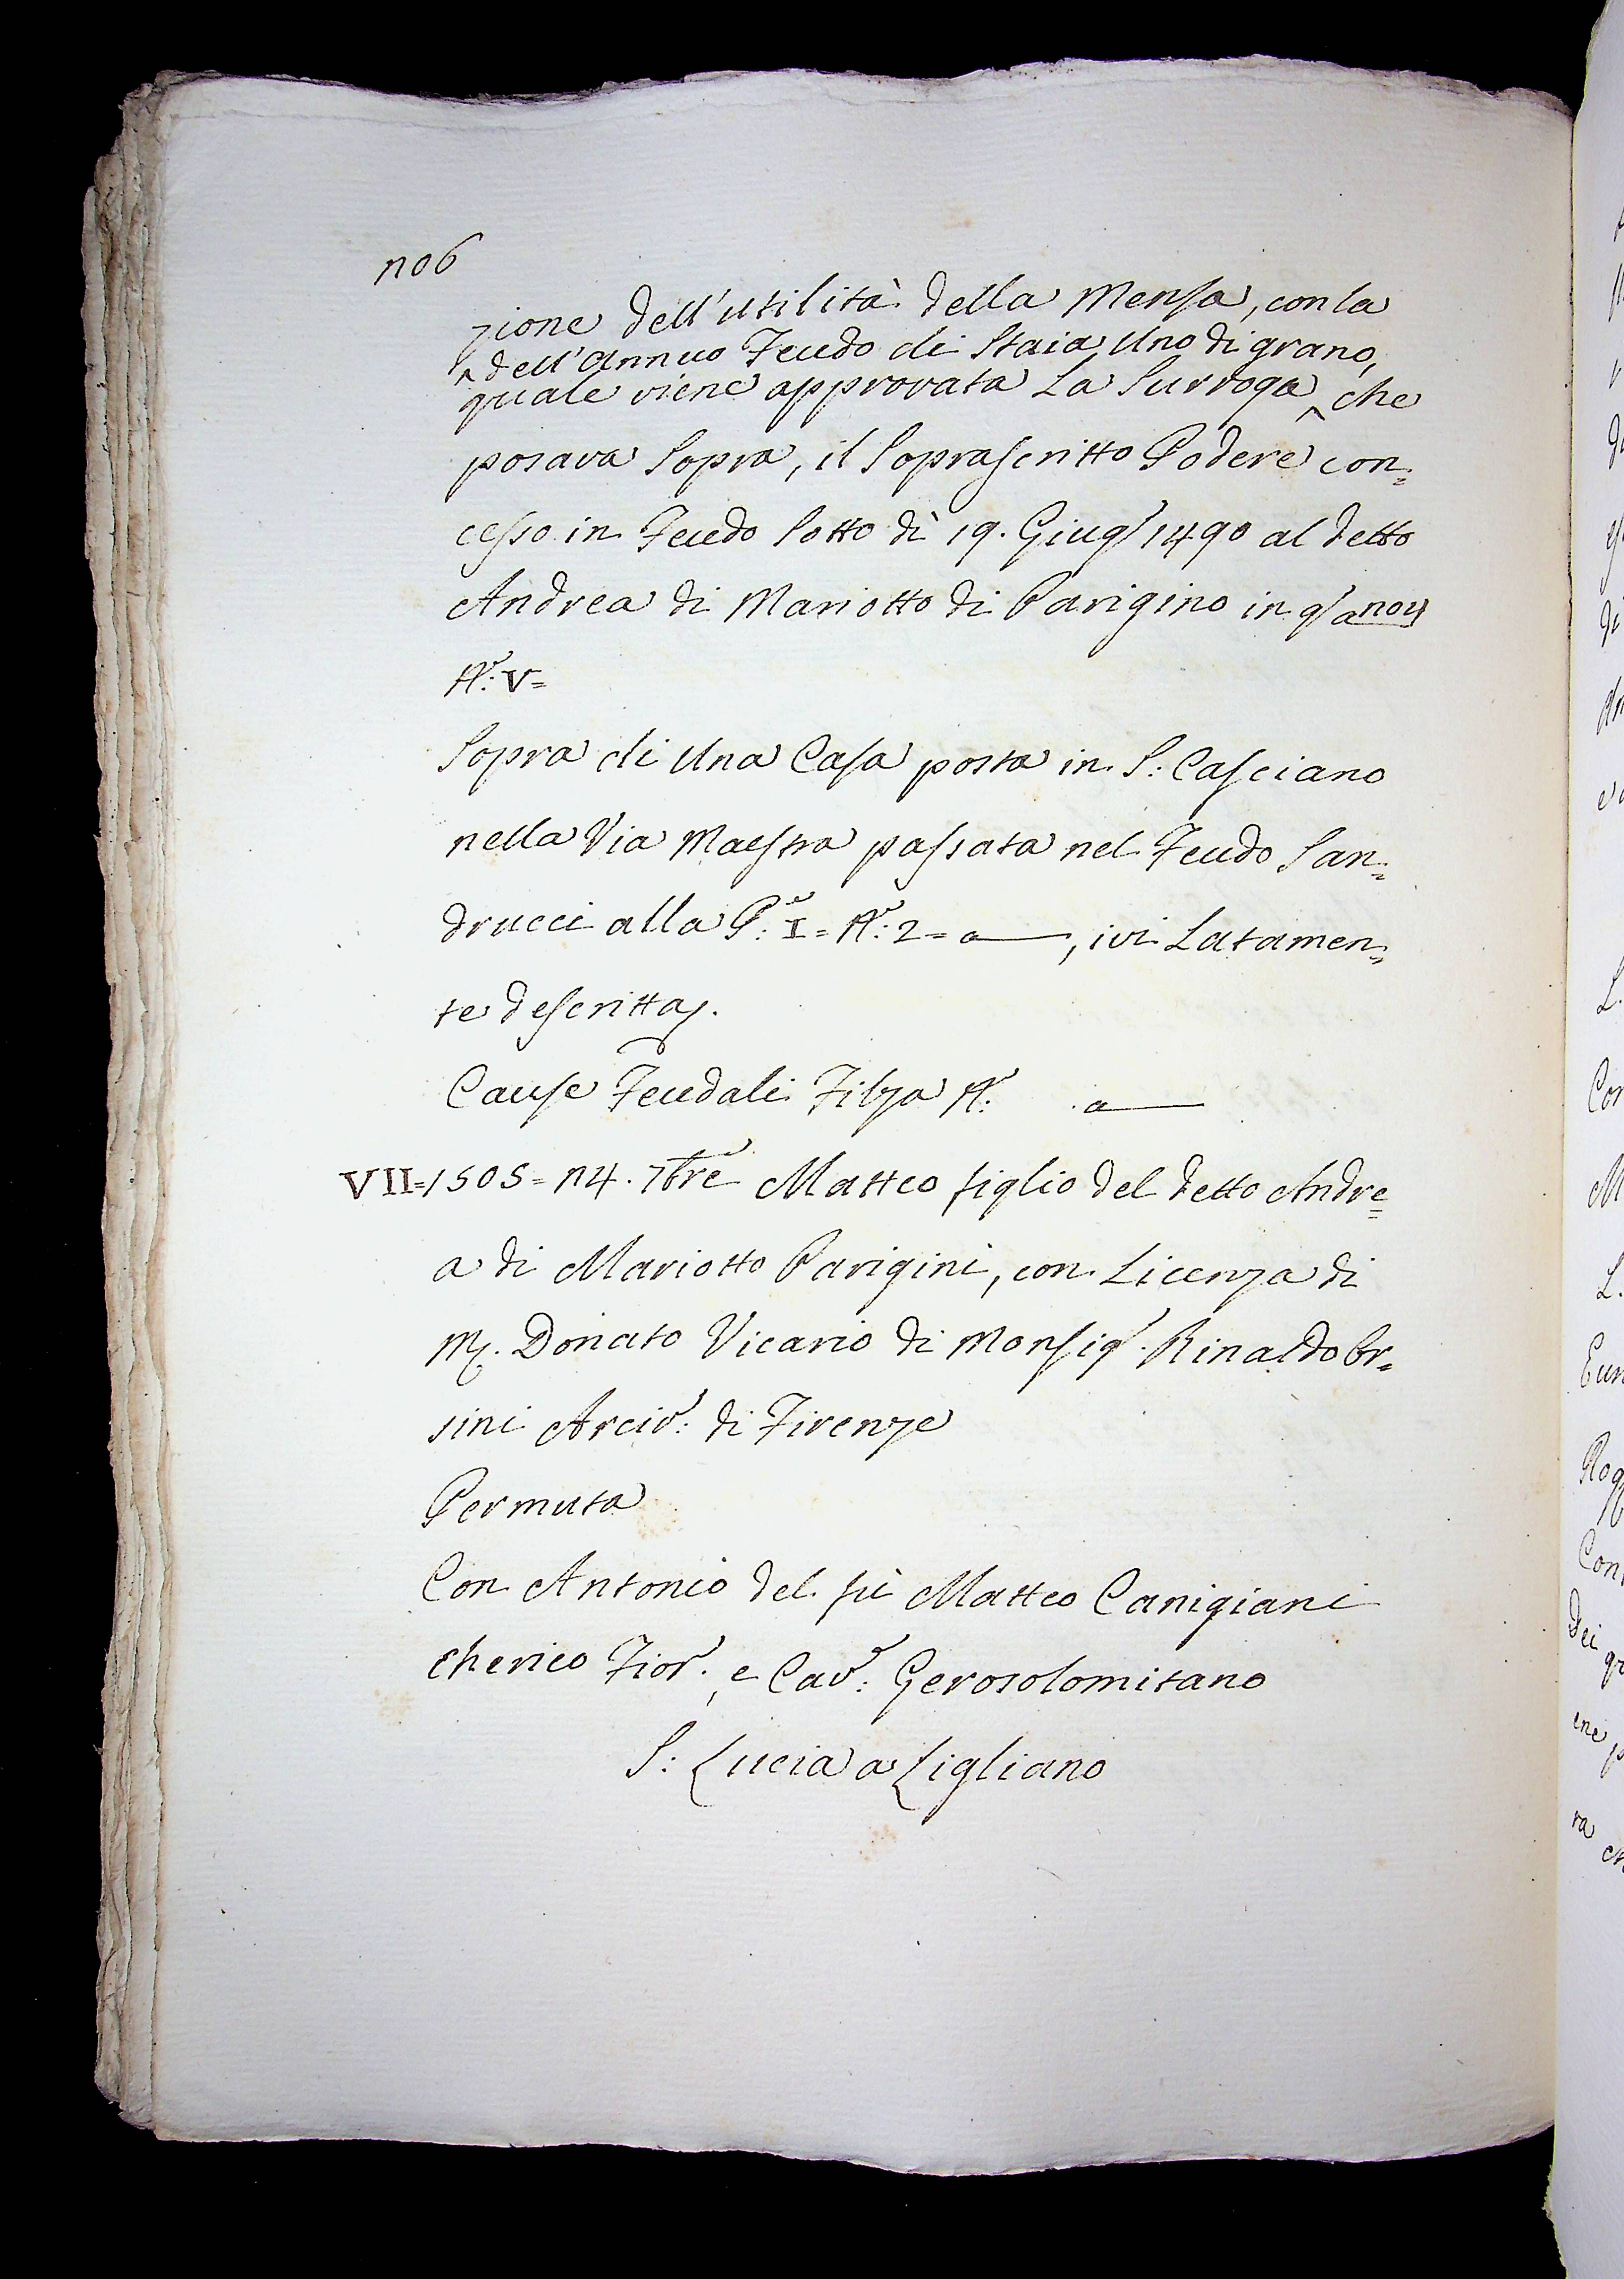 no6
zione dell'utilità della Mensa, con la
^ dell'Annuo Feudo di Staia Uno di grano,
quale viene approvata La Surroga ^ che
posava Sopra, il Soprascritto Podere con=
cesso in Feudo Sotto dì 19. Giug 1490 al detto
Andrea di Mariotto di Parigino in
N.: V=
Sopra di Una Casa posta in S: Casciano
nella Via Maestra passata nel Feudo San=
drucci alla P: I= N.: 2= a——, ivi Latamen=
te descritta.
Cause Feudali Filza N: a——
VII=1505= 14. 7bre Matteo figlio del detto Andre=
a di Mariotto Parigini, con Licenza di
M. Donato Vicario di Monsig. Rinaldo Or=
sini Arciv: di Firenze
Permuta
Con Antonio del fù Matteo Canigiani
Cherico Fior., e Cav: Gerosolomitano
S: Lucia a Ligliano